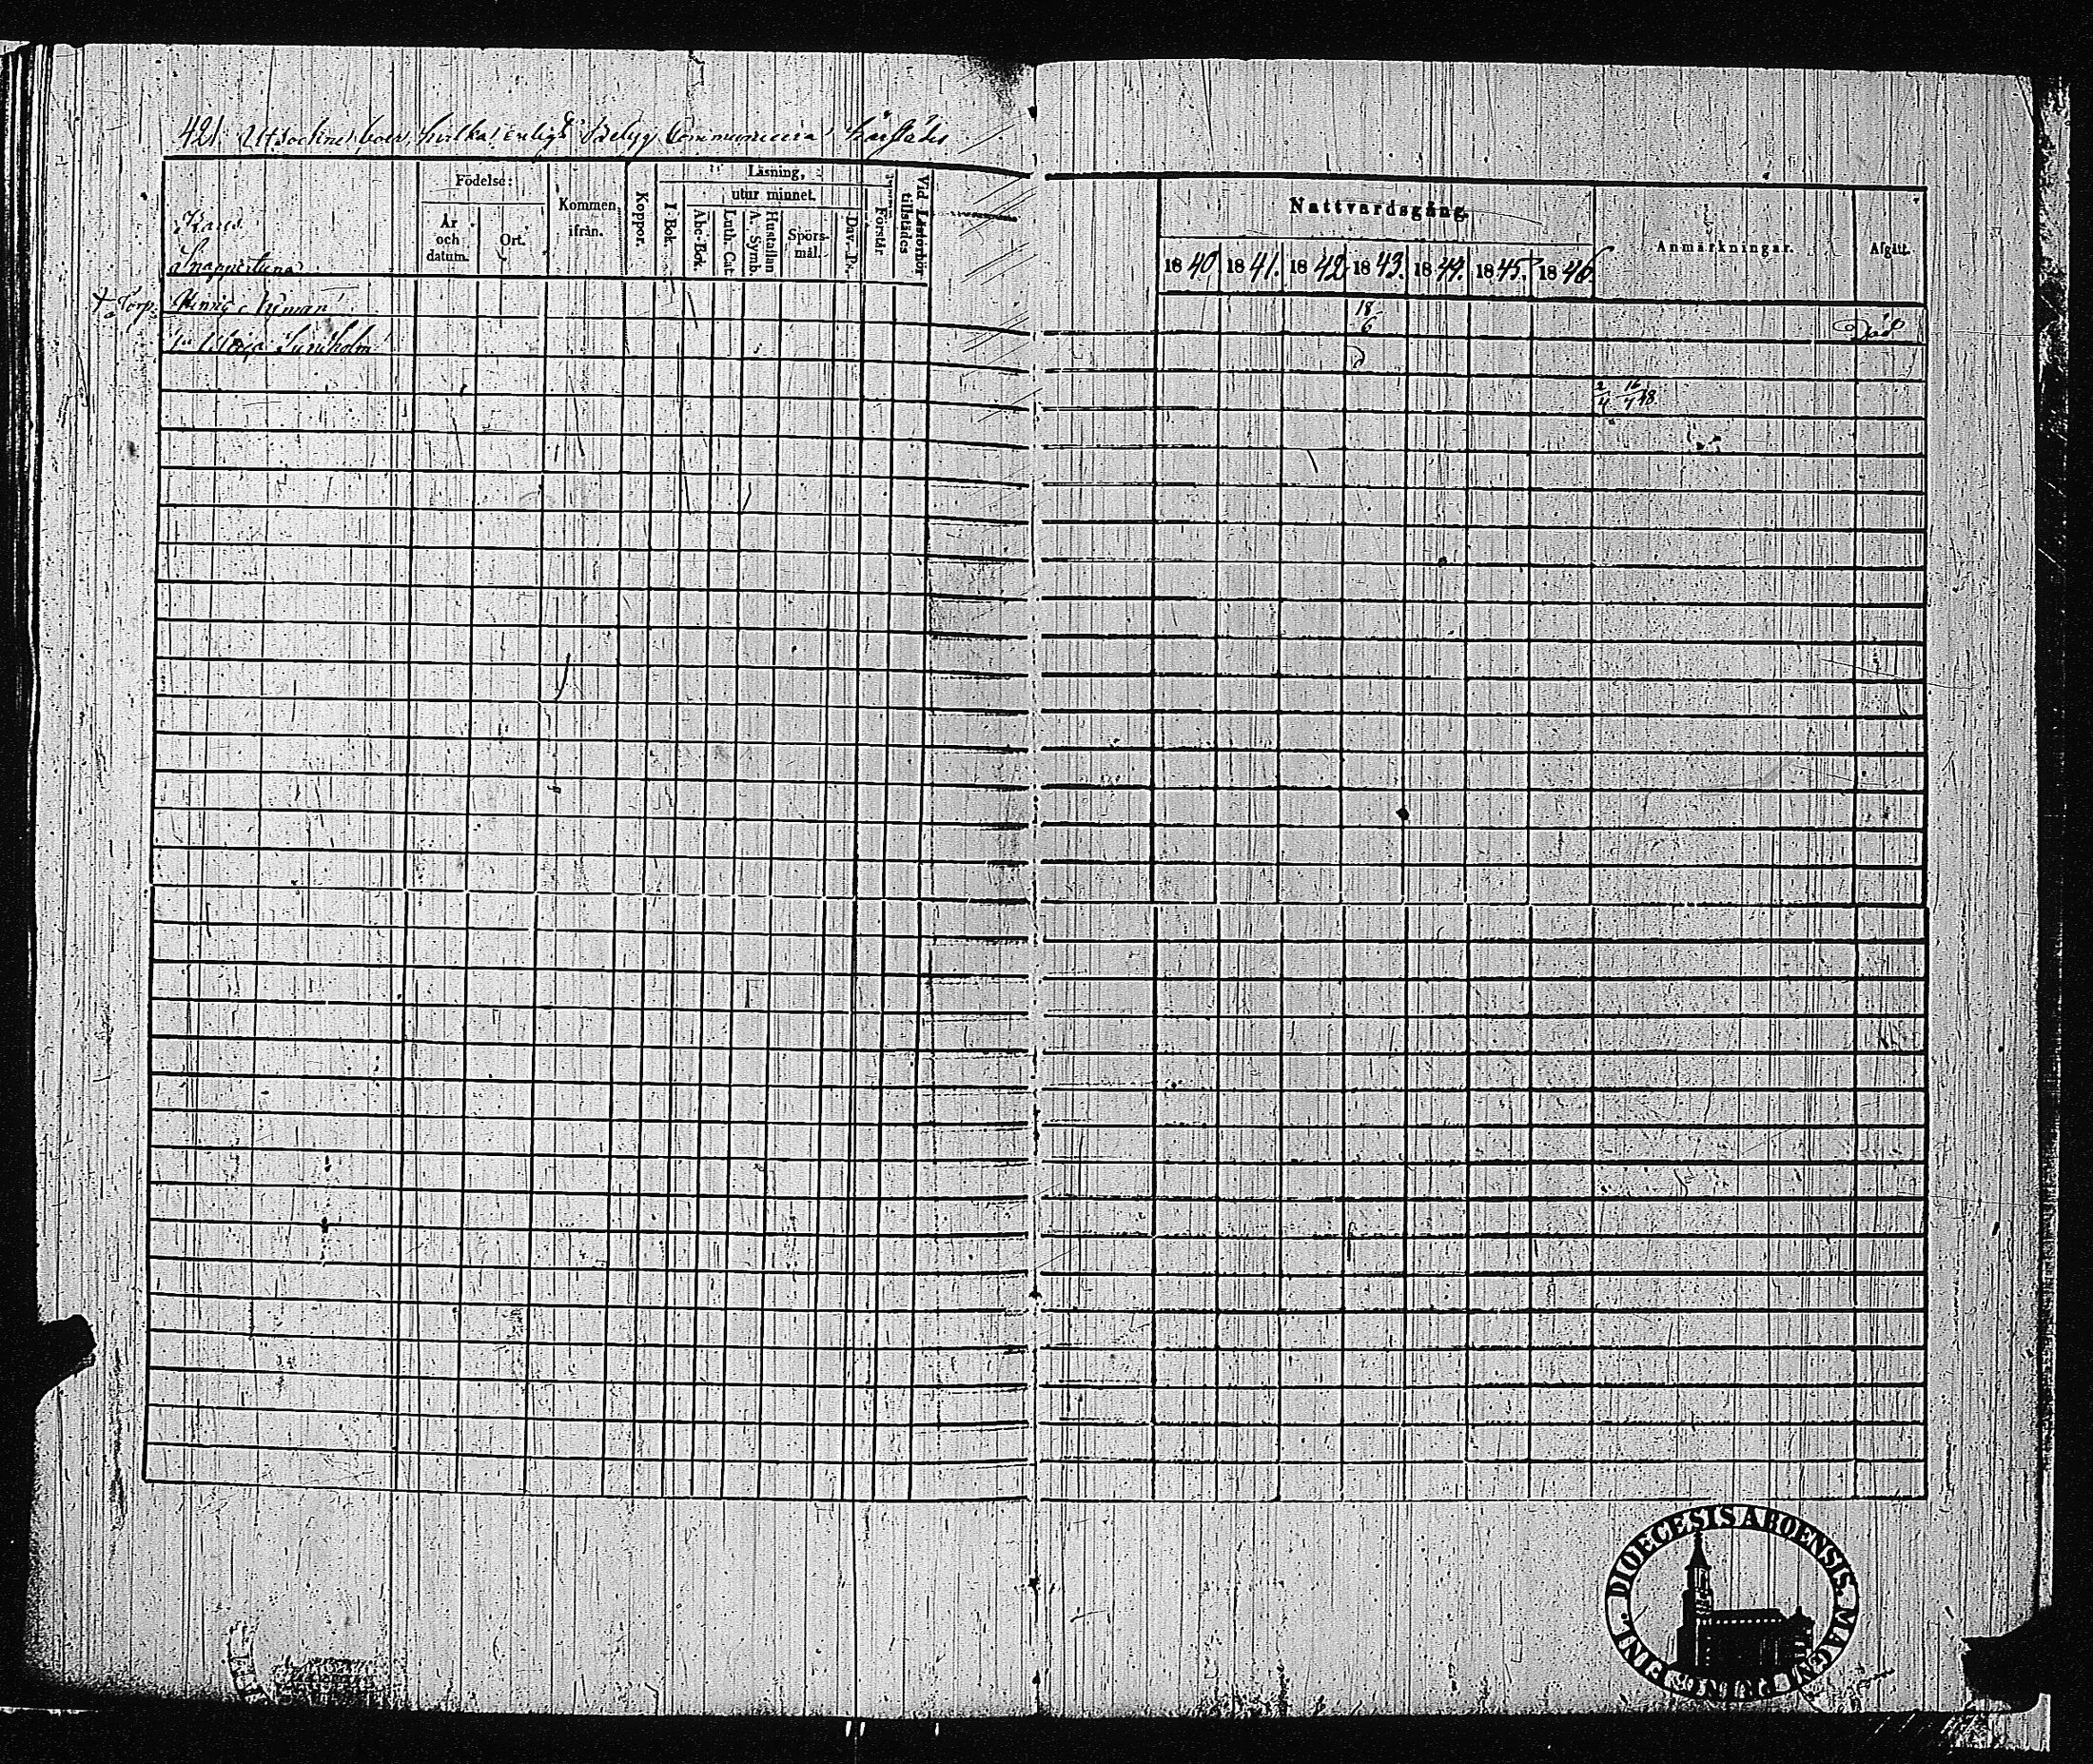 421. Utsockne boer, hvilka enligt Betyg Communicera härstädes
Födelse:
År och datum.
Ort.
Kommen ifrån.
Koppor.
Läsning,
utur minnet.
I Bok.
Abc-Bok
Luth. Cat
Hustaflan A. Symb.
Spörsmål.
Dav. P.
Förstår
Vid Läsförhör tillstädes
Nattvardsgång.
1840. 1841. 1842 1843. 1844. 1845. 1846.
Anmärkningar.
Afgått.
Karis
Snappertuna
† Torp. Nyman 18/6 Död
Sundholm
2/4 16/7 48
DIOECESIS ABOENSIS. MAGNI PRINC. FINL.